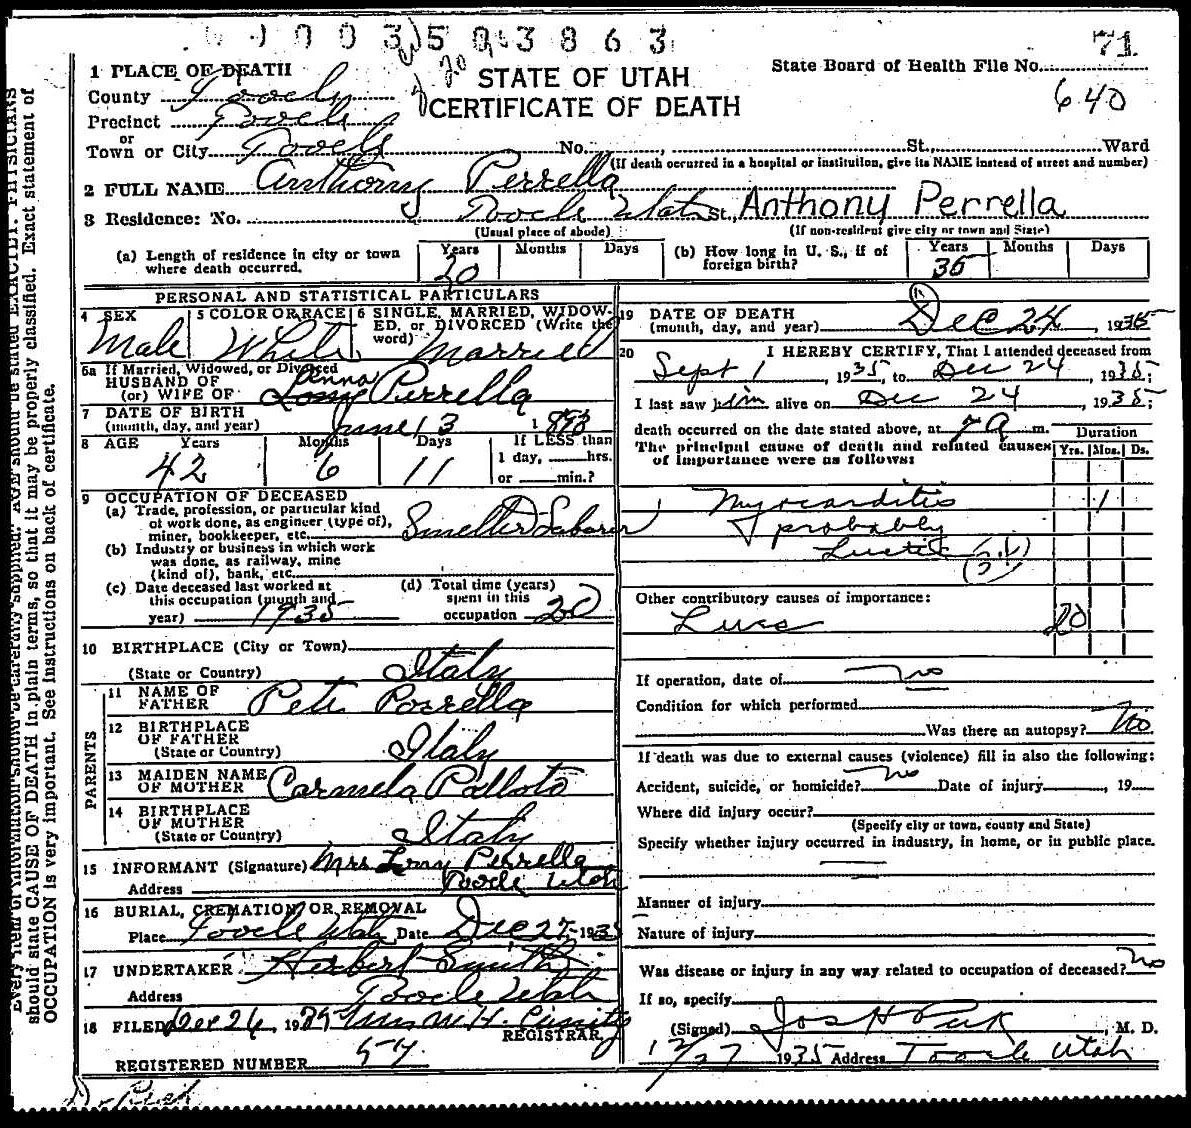 0 0 0 3 5 0 3 8 6 3
71
1 PLACE OF DEATH
STATE OF UTAH
CERTIFICATE OF DEATH
State Board of Health File No.
640
County Tooele
Precinct Tooele
or
Town or City Tooele No. , St., Ward
(If death occurred in a hospital or institution, give its NAME instead of street and number)
2 FULL NAME Anthony Perrella
3 Residence: No. Tooele Utah St., Anthony Perrella
(Usual place of abode) (If non-resident give city or town and State)
(a) Length of residence in city or town where death occurred. Years 20 Months Days
(b) How long in U. S., if of foreign birth? Years 35 Months Days
PERSONAL AND STATISTICAL PARTICULARS
4 SEX Male
5 COLOR OR RACE White
6 SINGLE, MARRIED, WIDOWED, or DIVORCED (Write the word) Married
6a If Married, Widowed, or Divorced
HUSBAND OF
(or) WIFE OF Anna Perrella
7 DATE OF BIRTH
(month, day, and year) June 13 1893
8 AGE Years 42 Months 6 Days 11
If LESS than
1 day, hrs.
or min.?
9 OCCUPATION OF DECEASED
(a) Trade, profession, or particular kind of work done, as engineer (type of), miner, bookkeeper, etc. Smelter Laborer
(b) Industry or business in which work was done, as railway, mine (kind of), bank, etc.
(c) Date deceased last worked at this occupation (month and year) 1935
(d) Total time (years) spent in this occupation 20
10 BIRTHPLACE (City or Town)
(State or Country) Italy
PARENTS
11 NAME OF FATHER Pete Perrella
12 BIRTHPLACE OF FATHER
(State or Country) Italy
13 MAIDEN NAME OF MOTHER Carmela
14 BIRTHPLACE OF MOTHER
(State or Country) Italy
15 INFORMANT (Signature) Mrs Perrella
Address Tooele Utah
16 BURIAL, CREMATION OR REMOVAL
Place Tooele Utah Date Dec 27 1935
17 UNDERTAKER Herbert Smith
Address Tooele Utah
18 FILED Dec 26, 19 Mrs W.H.
REGISTRAR
REGISTERED NUMBER 54
19 DATE OF DEATH
(month, day, and year) Dec 24, 1935
20 I HEREBY CERTIFY, That I attended deceased from
Sept 1, 1935, to Dec 24, 1935;
I last saw him alive on Dec 24, 1935;
death occurred on the date stated above, at 7 A m.
The principal cause of death and related causes of importance were as follows:
Duration
Yrs. Mos. Ds.
Myocarditis 1
probably
Luetic
(?)
Other contributory causes of importance:
Lues 20
If operation, date of no
Condition for which performed
Was there an autopsy? No
If death was due to external causes (violence) fill in also the following:
Accident, suicide, or homicide? no Date of injury , 19
Where did injury occur?
(Specify city or town, county and State)
Specify whether injury occurred in industry, in home, or in public place.
Manner of injury
Nature of injury
Was disease or injury in any way related to occupation of deceased? No
If so, specify
(Signed) Jos H Peck, M. D.
12/27 1935 Address Tooele Utah
Dr Peck
should state CAUSE OF DEATH in plain terms, so that it may be properly classified. Exact statement of
OCCUPATION is very important. See instructions on back of certificate.